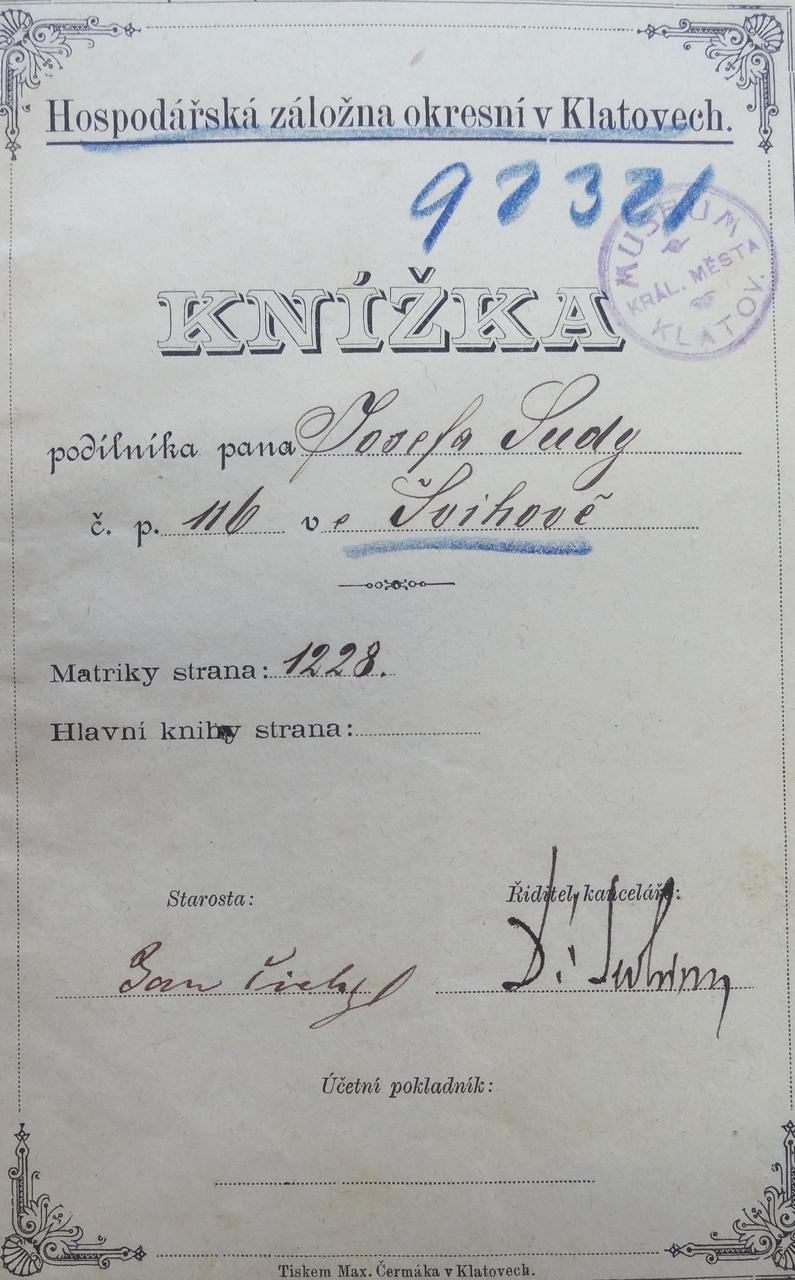 Hospodářská záložna okresní v Klatovech.
97321
MUSEUM
KRÁL. MĚSTA
KLATOV.
KNÍŽKA
podílníka pana Josefa Sudy
č. p. 116 ve Švihově
Matriky strana: 1228.
Hlavní knihy strana:
Starosta: Řiditel kanceláře:
Jan
Účetní pokladník:
Tiskem Max. Čermáka v Klatovech.